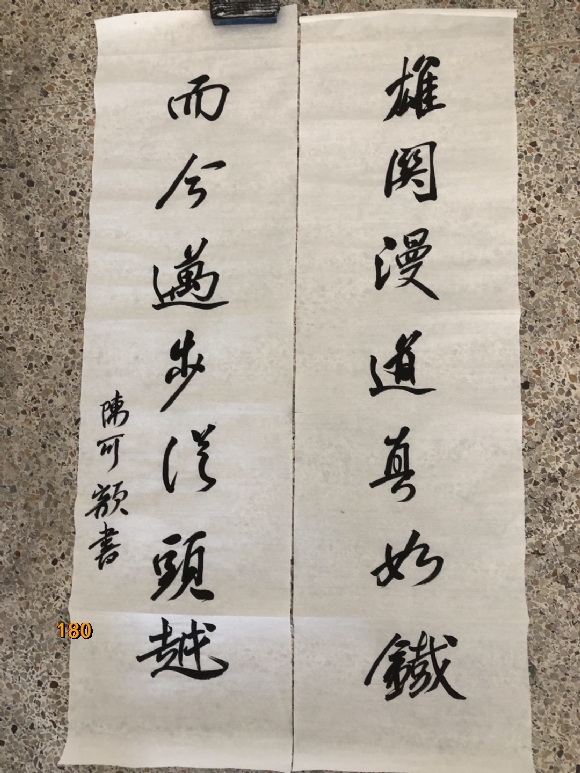 雄関漫道真如鐵
而今邁步從頭越
陳可額書
180